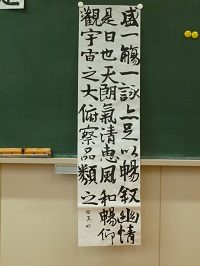 盛一觴一詠上足以暢叙幽情
是日也天朗氣清惠風和暢仰
觀宇宙之大俯察品類之